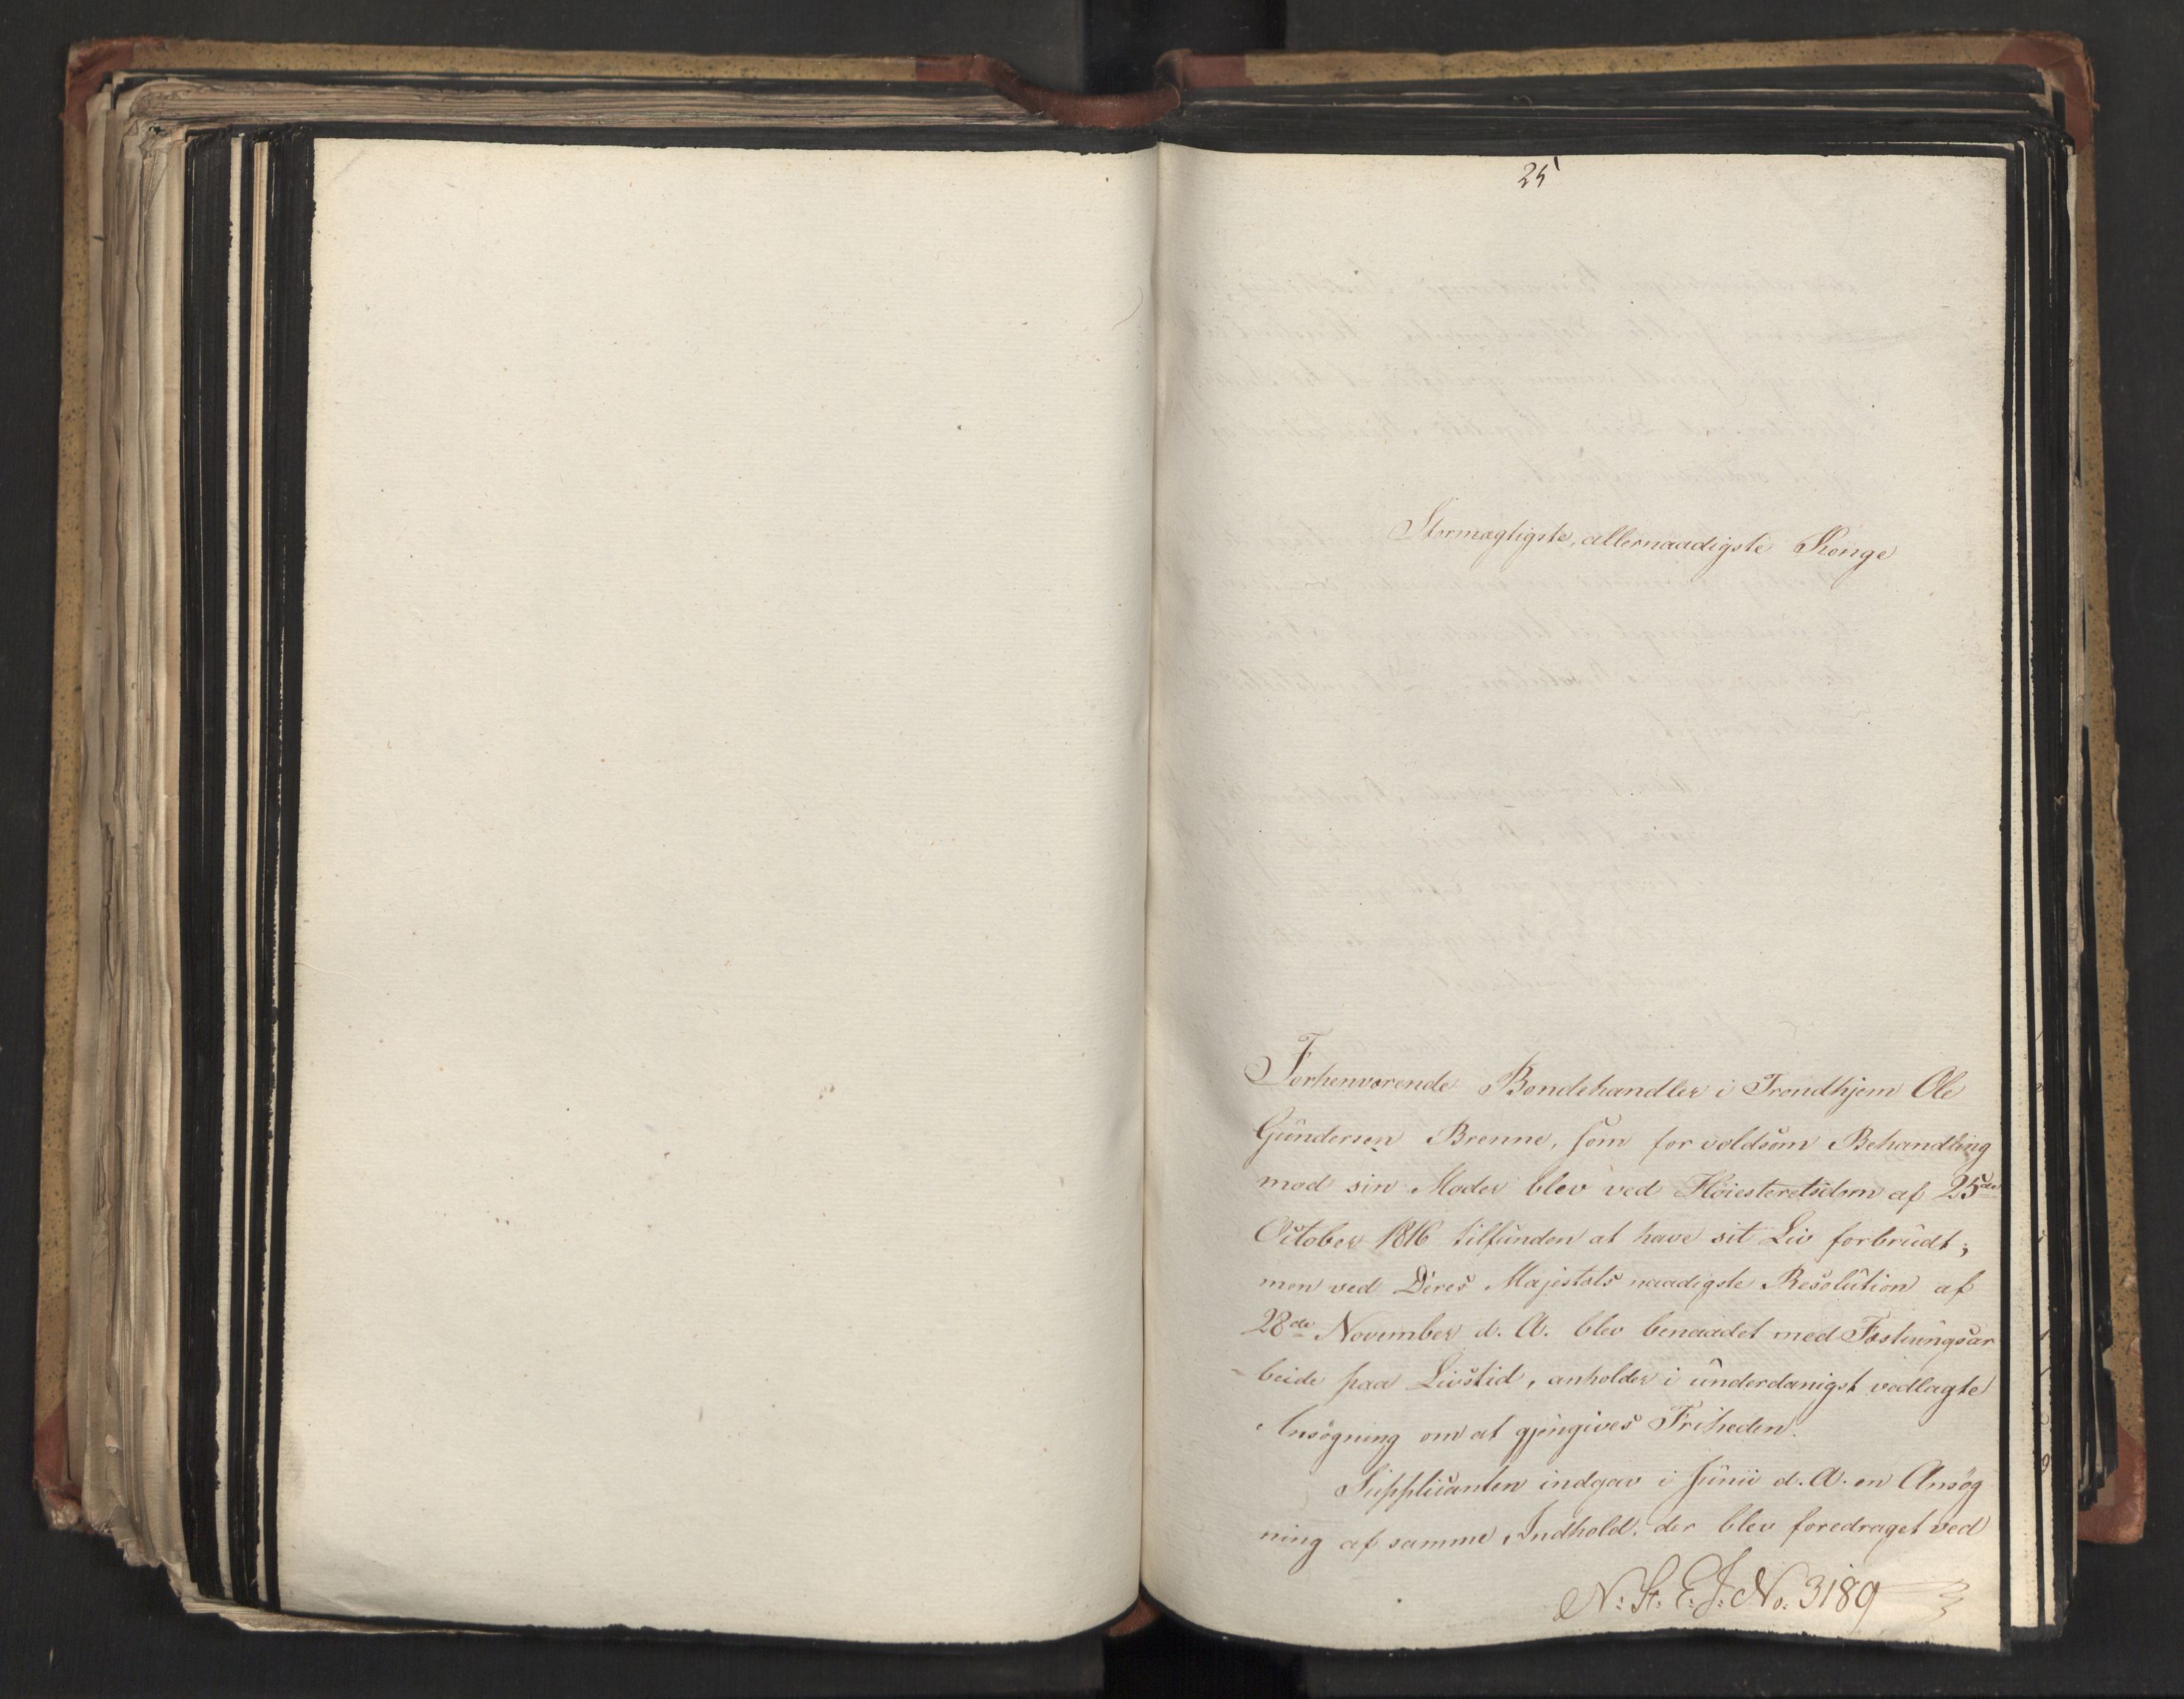 25
Stormægtigste, allernaadigste Konge
Forhenværende Bondehandler i Trondhjem Ole
Gundersen Brenne, som for voldsom Behandling
mod sin Moder blev ved Høiesteretsdom af 25de
October 1816 tilfunden at have sit Liv forbrudt;
men ved Deres Majestæts naadigste Resolution af
28de November d. A. blev benaadet med Fæstningsar
-beide paa Livstid, anholder i underdanigst vedlagte
Ansøgning om at gjengives Friheden.
Supplicanten indgav i Junii d. A. en Ansøg
ning af samme Indhold, der blev foredraget ved
N: St. E. J: No. 3189